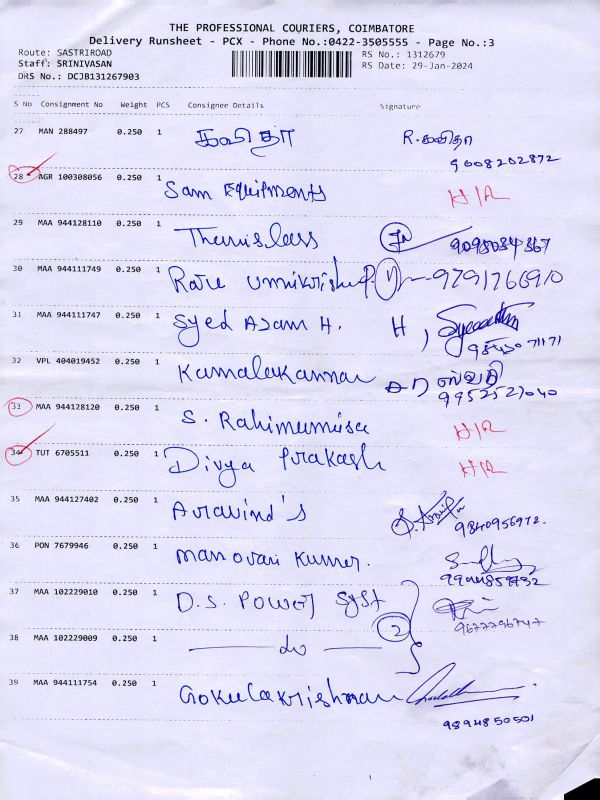 THE PROFESSIONAL COURIERS, COIMBATORE
Delivery Runsheet - PCX - Phone No.:0422-3505555 - Page No.:3
Route: SASTRIROAD RS No.: 1312679
Staff: SRINIVASAN RS Date: 29-Jan-2024
DRS No.: DCJB131267903
S No Consignment No Weight PCS Consignee Details Signature
27 MAN 288497 0.250 1 கவிதா R.கவிதா
9008202872
28 AGR 100308056 0.250 1 Sam Equipments H/R
29 MAA 944128110 0.250 1
30 MAA 944111749 0.250 1 9791766910
31 MAA 944111747 0.250 1 Syed Azam H. H,
32 VPL 404019452 0.250 1 Kamalakannan
9952521040
33 MAA 944128120 0.250 1 S. H/R
34 TUT 6705511 0.250 1 Divya Prakash H/R
35 MAA 944127402 0.250 1 Aravind's
9840956972.
36 PON 7679946 0.250 1 Kumar.
37 MAA 102229010 0.250 1 D.S. Power Syst
38 MAA 102229009 0.250 1 do 2
39 MAA 944111754 0.250 1 Gokulakrishnan
9894850501